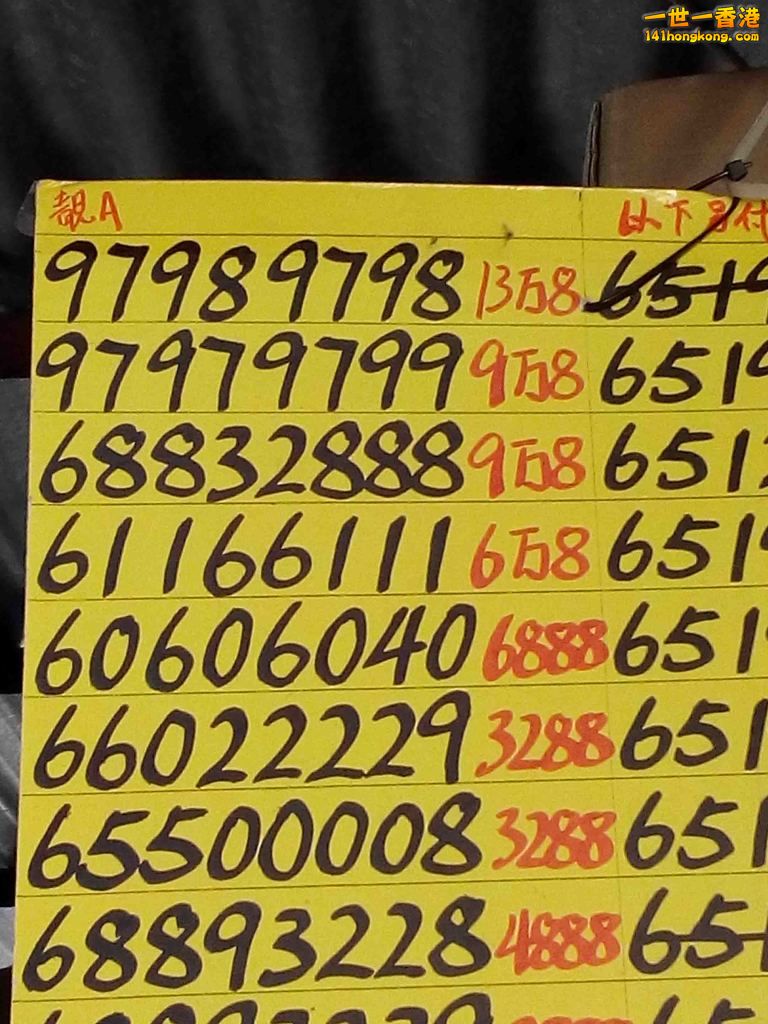 一世一香港
141hongkong.com
靚A 以下号付
97989798 13万8 6519
97979799 9万8 6519
68832888 9万8 651
61166111 6万8 6519
60606040 6888 651
66022229 3288 651
65500008 3288 651
68893228 4888 651